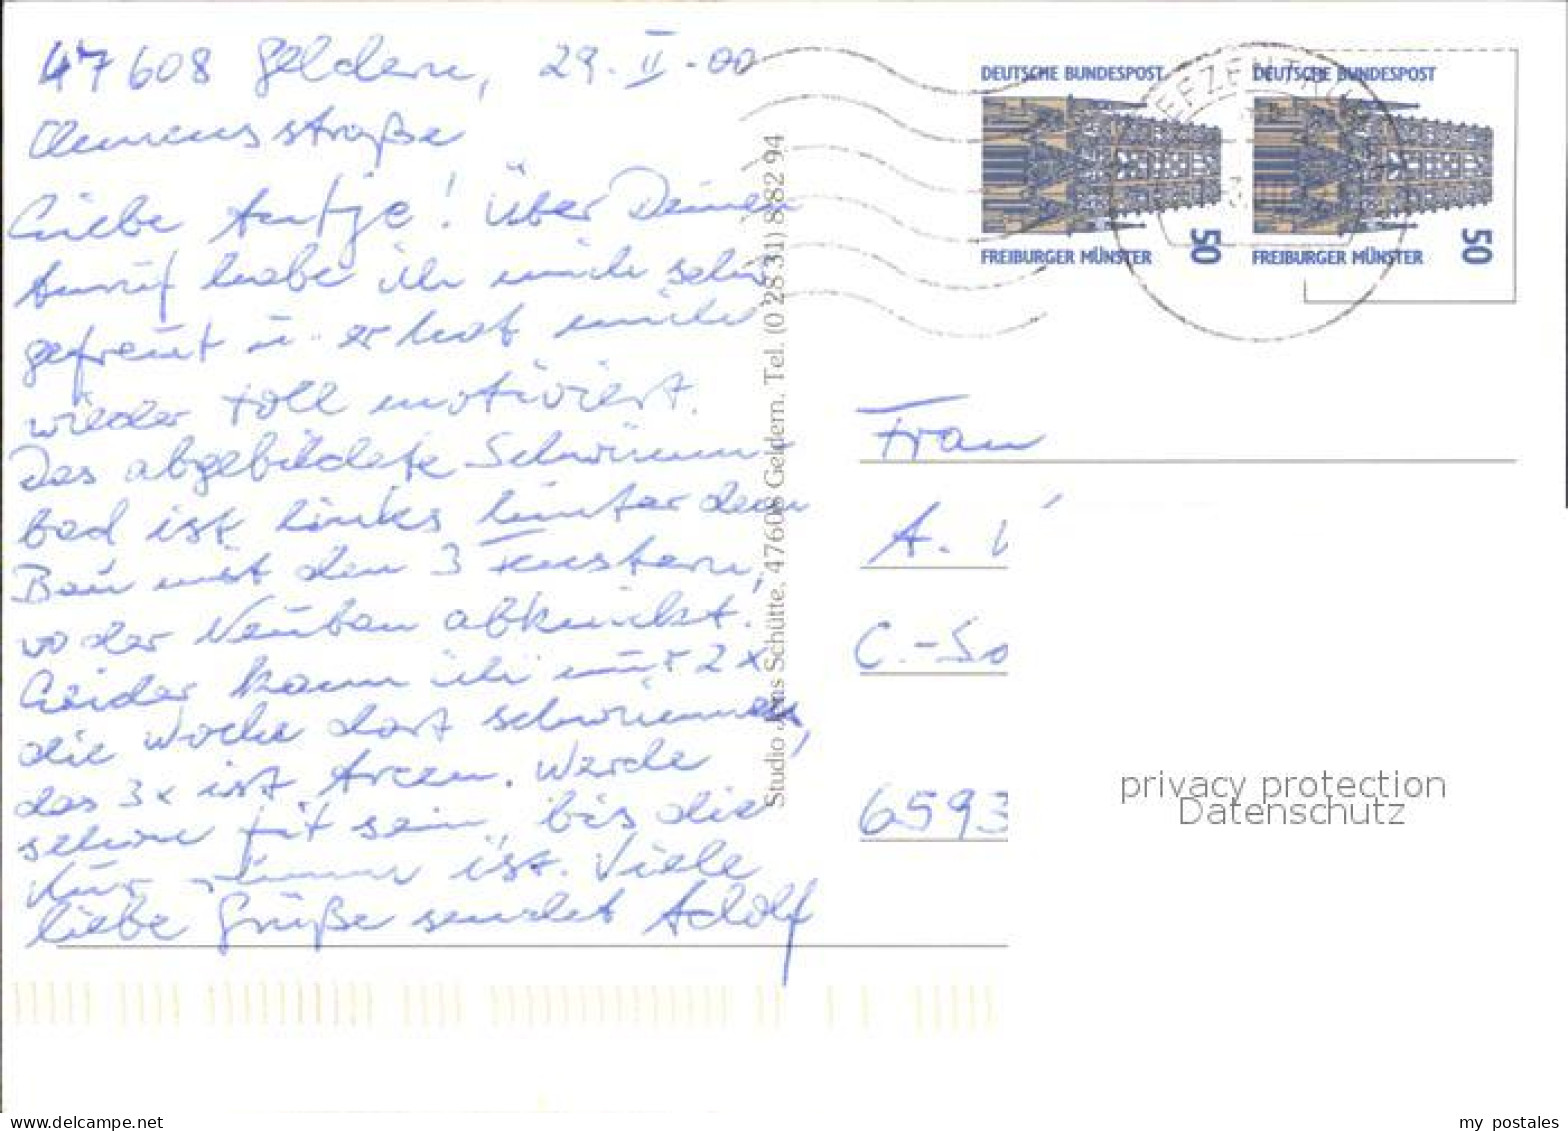 47608 Geldern, 29. II. 00
Clemensstraße
Liebe Antje! Über Deinen
Anruf habe ich mich sehr
gefreut u. er hat mich
wieder toll motiviert.
Das abgebildete Schwimm
bad ist links hinter dem
Bau mit den 3 Fenstern,
wo der Neubau abknickt.
Leider kann ich nur 2x
die Woche dort schwimmen,
das 3x ist Arcen. Werde
schon fit sein, bis die
Kur ist. Viele
liebe Grüße sendet Adolf
Studio Jens Schütte, 47608 Geldern, Tel. (0 28 31) 8 82 94
DEUTSCHE BUNDESPOST
50
FREIBURGER MÜNSTER
DEUTSCHE BUNDESPOST
50
FREIBURGER MÜNSTER
EFZENTRU
Frau
A.
C.-So
6593
privacy protection
Datenschutz
www.delcampe.net
my_postales